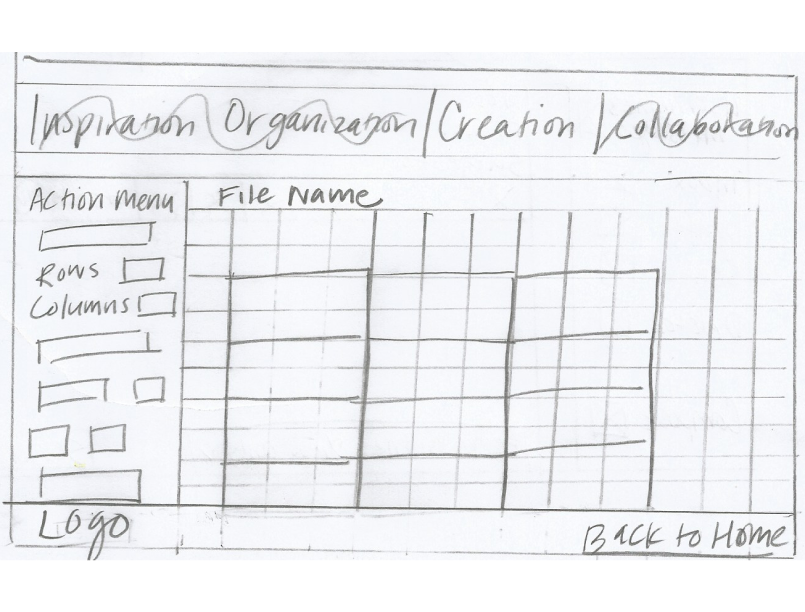 Inspiration Organization | Creation | Collaboration
Action Menu
File Name
Rows
Columns
Logo
Back to Home